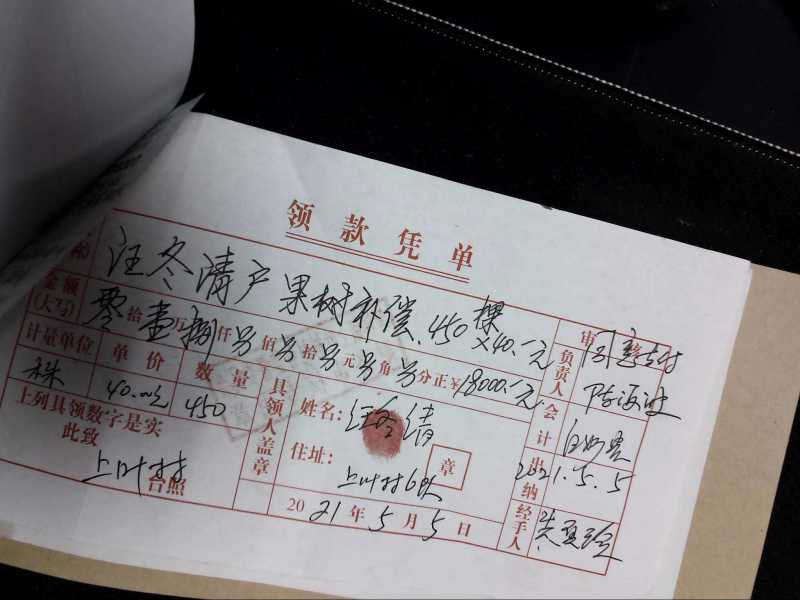 领款凭单
称 汪冬清户果树补偿.450棵×40.元
金额(大写) 零拾壹万捌仟另佰另拾另元另角另分正¥18000.元
计量单位 单价 数量
株 40.元 450
上列具领数字是实
此致
上叶村 台照
具领人盖章
姓名:汪冬清
住址:上叶村6队
章
2021年5月5日
审 同意支付
负责人 陈
会计
出纳 2021.5.5
经手人